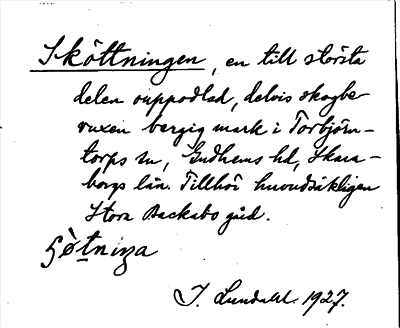 Sköttningen, en till största
delen ouppodlad, delvis skogbe-
vuxen bergig mark i Torbjörn-
torps sn, Gudhems hd, Skara-
borgs län. Tillhör huvudsakligen
Stora Backabo gård.
I. Lundahl 1927.